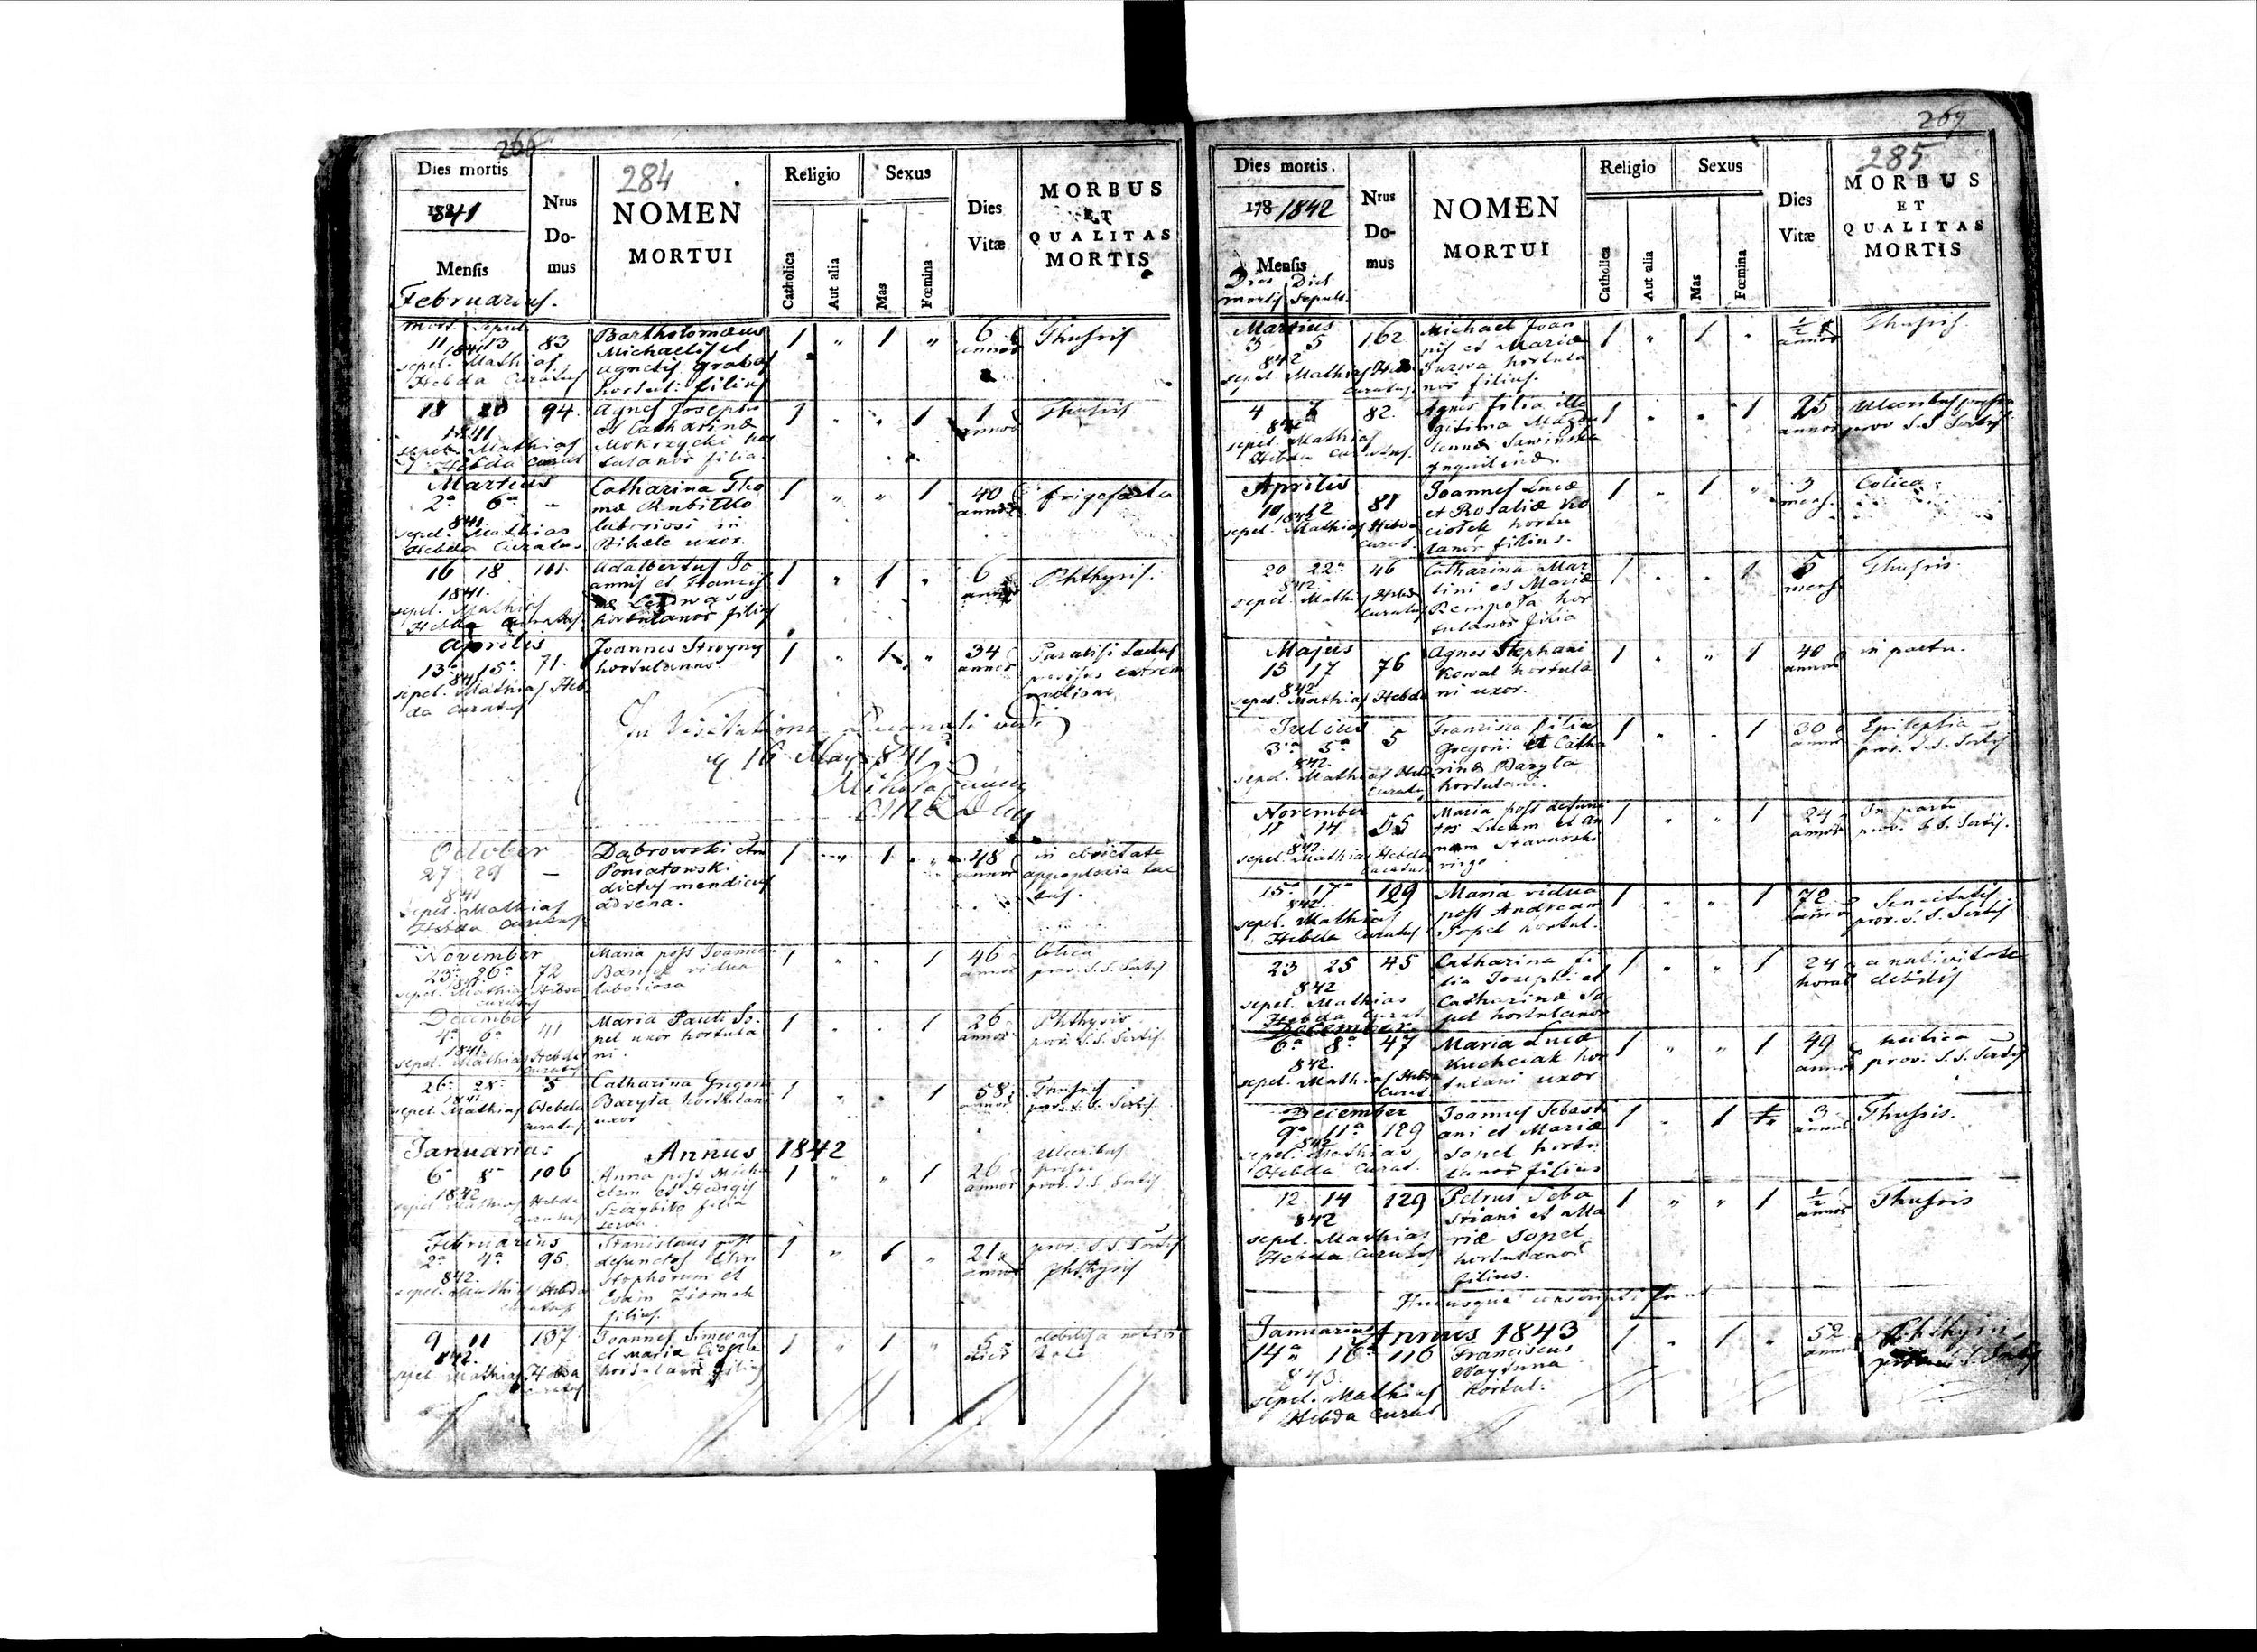 284
Dies mortis
1841
Mensis
Februarius.
Nrus
Do-
mus
NOMEN
MORTUI
Religio
Catholica
Aut alia
Sexus
Mas
Fœmina
Dies
Vitæ
MORBUS
ET
QUALITAS
MORTIS
mort. sepul.
11 13 83
1841
sepel. Mathias
Hebda Curatus
Bartholomæus
Michaelis et
Agnetis
hortul: filius
1 „ 1 „
6
annor
Thussis
18 20 94
1841
sepel. Mathias
Hebda Curat
Agnes Josephi
et Catharinæ
Mokrzycki hor
tulanor filia.
1 „ „ 1
1
annor
Thussis
Martius
2a 6a –
841.
sepel. Mathias
Hebda Curatus
Catharina Tho
mæ
laboriosi in
uxor.
1 „ „ 1
40
annor
frigefacta
16 18 111.
1841.
sepel. Mathias
Hebda Curatus
Adalbertus Jo
annis et Francis
hortulanor filius
1 „ 1 „
6
Phthysis.
Aprilis
13a 15a 71.
841
sepel. Mathias Heb
da Curatus
Joannes Stroyny
hortulanus.
1 „ 1 „
34
annor
Paralisi tactus
provisus extrem
unctione
In Visitatione Decanali vidi
16 May 841
October
27 29 –
841
sepel. Mathias
Hebda Curatus
Dąbrowski
Poniatowski
dictus mendicus
advena.
1 „ 1 „
48
annor
in ebrietate
appoplexia tac
tus.
November
23a 26a 72
sepel. Mathias Hebda
curatus
Maria post Joannem
vidua
laboriosa
1 „ „ 1
46
annor
Colica
prov. S.S. Sertis
December
4a 6a 41
1841.
sepel. Mathias Hebda
Curatus
Maria Pauli So-
pel uxor hortula
ni.
1 „ „ 1
26
annor
Phthysis
prov. S.S. Sertis.
26a 28a 5
1841.
sepel. Mathias Hebda
Curatus
Catharina Gregorii
Baryła hortulani
uxor
1 „ „ 1
58
annor
Thussis
prov. S.S. Sertis
Januarius Annus 1842
6a 8a 106
1842
sepel Mathias Hebda
Curatus
Anna post Micha
elem et Hedvigis
filia
serva.
1 „ „ 1
26
annor
Ulceribus
prov. S.S. Sertis
Februarius
2a 4a 95
842.
sepel. Mathias Hebda
Curatus
Stanislaus post
defunctos Chri
stophorum et
Evam Ziomek
filius.
1 „ 1 „
21
annor
prov. S.S. Sertis
phthysis
9 11 137
842.
sepel. Mathias Hebda
Curatus
Joannes Simeonis
et Mariæ
hortulanor filius
1 „ 1 „
5
dier
debilis a nativi
tate
269
285
Dies mortis.
178 1842
Mensis
Dies Dies
mortis Sepult.
Nrus
Do-
mus
NOMEN
MORTUI
Religio
Catholica
Aut alia
Sexus
Mas
Fœmina
Dies
Vitæ
MORBUS
ET
QUALITAS
MORTIS
Martius
3 5 162
842
sepel. Mathias Heb
Curatus
Michael Joan
nis et Mariæ
hortula
nor filius.
1 „ 1 „
½
annor
Thussis
4 82.
842
sepel. Mathias
Hebda Curatus.
Agnes filia ille
gitima Magda
lennæ Sawinska
Inquilinæ.
1 „ „ 1
25
annor
Ulceribus
prov S.S Sertis.
Aprilis
10 12 81
1842
sepel. Mathias Hebda
Curat.
Joannes Lucæ
et Rosaliæ Ko
ciołek hortu
lanor filius.
1 „ 1 „
3
mens.
Colica
20 22a 46
842.
sepel. Mathias Hebda
Curatus
Catharina Mar
tini et Mariæ
Rempoła hor
tulanor filia
1 „ „ 1
5
mens
Thussis.
Majus
15 17 76
842.
sepel. Mathias Hebda
Agnes Stephani
Kowal hortula
ni uxor.
1 „ „ 1
40
annor
in partu.
Julius
3a 5a 5
842.
sepel. Mathias Heb
Curatus
Francisca filia
Gregorii et Catha
rinæ Baryła
hortulani.
1 „ „ 1
30
annor
Epilepsia
prov. S.S. Sertis
November
11 14 55
842.
sepel. Mathias Hebda
Curatus
Maria post defunc
tos Lucam et An
nam Stavarski
virgo
1 „ „ 1
24
annor
In partu
prov. S.S. Sertis.
15a 17a 129
842.
sepel. Mathias
Hebda Curatus
Maria vidua
post Andream
Sopel hortul.
1 „ „ 1
72
annor
Senectutis.
prov. S.S. Sertis
23 25 45
842
sepel. Mathias
Hebda Curat
Catharina fi
lia Josephi et
Catharinæ So
pel hortulanor
1 „ „ 1
24
horar
a nativitate
debilis
December
6a 8a 47
842.
sepel. Mathias Hebda
Curat.
Maria Lucæ
Kuchciak hor
tulani uxor
1 „ „ 1
49
annor
prov. S.S. Sertis
December
9a 11a 129
842
sepel. Mathias
Hebda Curat.
Joannes Sebasti
ani et Mariæ
Sopel hortu
lanor filius
1 „ 1
3
annor
Thussis.
12 14 129
842
sepel. Mathias
Hebda Curatus
Petrus Seba
stiani et Ma
riæ Sopel
hortulanor
filius.
1 „ „ 1
½
annor
Thussis
Hucusque conscripti sunt
Januarius Annus 1843
14a 16a 116
843.
sepel. Mathias
Hebda Curat
Franciscus
Wayduna
hortul.
1 „ 1 „
52
annor
Phthysis